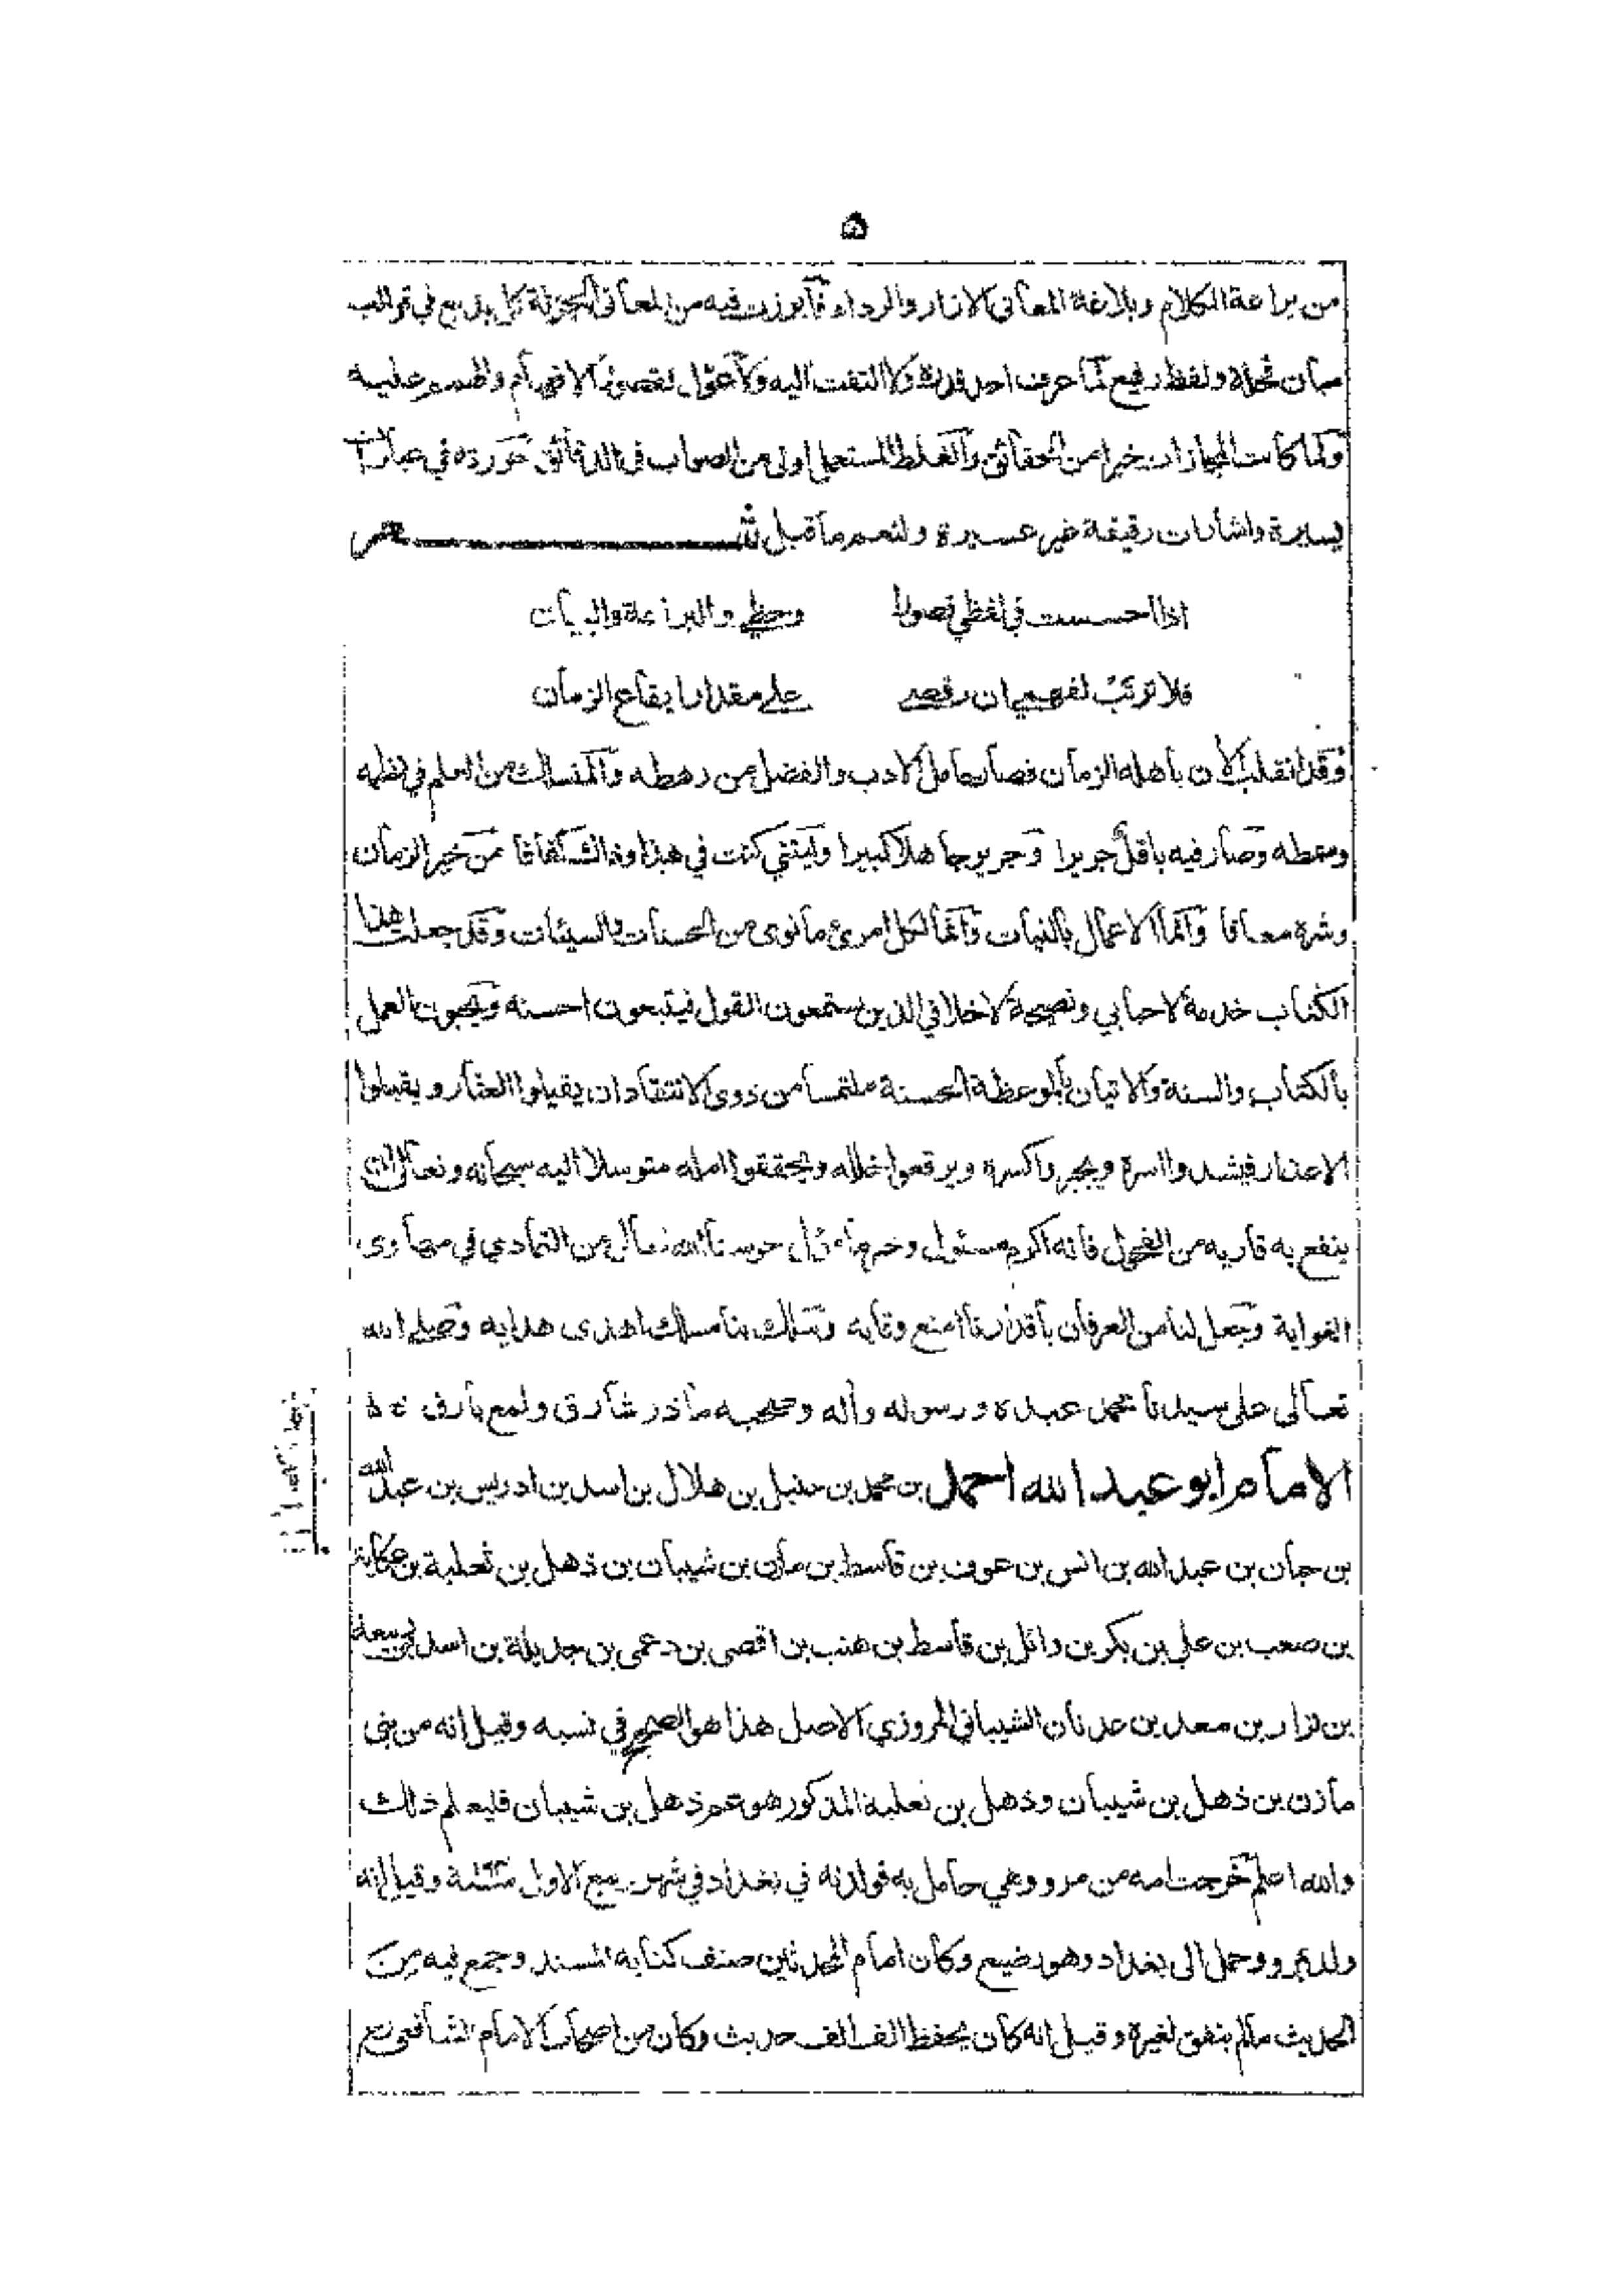 ۵
من براعة الكلام وبلاغة المعاني الازار والرداء فابرزت فيه من المعاني الجزلة كل بديع في قوالب
مبان ولفظ رفيع لما عرف احد قدره ولا التفت اليه ولا عول لقصور الافهام والهمم عليه
ولما كانت المجازات خيرا من الحقائق والغلط المستعمل اولى من الصواب في الدقائق حررته في عبارات
يسيرة واشارات رقيقة غير عسيرة ولنعم ما قيل شعر
اذا احسست في لفظي قصورا وحظي والبراعة والبيان
فلا ترتب لفهمي ان رقصي على مقدار ايقاع الزمان
وقد انقلب الآن باهله الزمان فصار حامل الادب والفضل من رهطه والمتمسك من العلم في
وصار فيه باقل جريرا وجرير جاهلا كبيرا وليتني كنت في هذا وذاك كفافا من خير الزمان
وشره معافا وانما الاعمال بالنيات وانما لكل امرئ ما نوى من الحسنات والسيئات وقد جعلت هذا
الكتاب خدمة لاحبابي ونصيحة لاخلائي الذين يستمعون القول فيتبعون احسنه ويحبون العمل
بالكتاب والسنة والاتيان بالموعظة الحسنة ملتمسا من ذوي الانتقاد ان يقيلوا العثار ويقبلوا
الاعذار فيشدوا اسره ويجبروا كسره ويرقعوا خلله ويحققوا امله متوسلا اليه سبحانه وتعالى ان
ينفع به قاريه من الفحول فانه اكرم مسئول وخير مامول حرسنا الله تعالى من التمادي في مهاوى
الغواية وجعل لنا من العرفان باقدارنا امنع وقايه وسلك بنا مسلك اهدى هدايه وصلى الله
تعالى على سيدنا محمد عبده ورسوله وآله وصحبه ما ذر شارق ولمع بارق
الامام ابو عبد الله احمد بن محمد بن حنبل بن هلال بن اسد بن ادريس بن عبد الله
بن حيان بن عبد الله بن انس بن عوف بن قاسط بن مازن بن شيبان بن ذهل بن ثعلبة بن عكابة
بن صعب بن علي بن بكر بن وائل بن قاسط بن هنب بن اقصى بن دعمى بن جديلة بن اسد بن ربيعة
بن نزار بن معد بن عدنان الشيباني المروزي الاصل هذا هو الصحيح في نسبه وقيل انه من بنى
مازن بن ذهل بن شيبان وذهل بن ثعلبة المذكور هو عم ذهل بن شيبان فليعلم ذلك
والله اعلم خرجت امه من مرو وهي حامل به فولدته في بغداد في شهر ربيع الاول وقيل انه
ولد بمرو وحمل الى بغداد وهو رضيع وكان امام المحدثين صنف كتابه المسند وجمع فيه من
الحديث مالم يتفق لغيره وقيل انه كان يحفظ الف الف حديث وكان من اصحاب الامام الشافعى